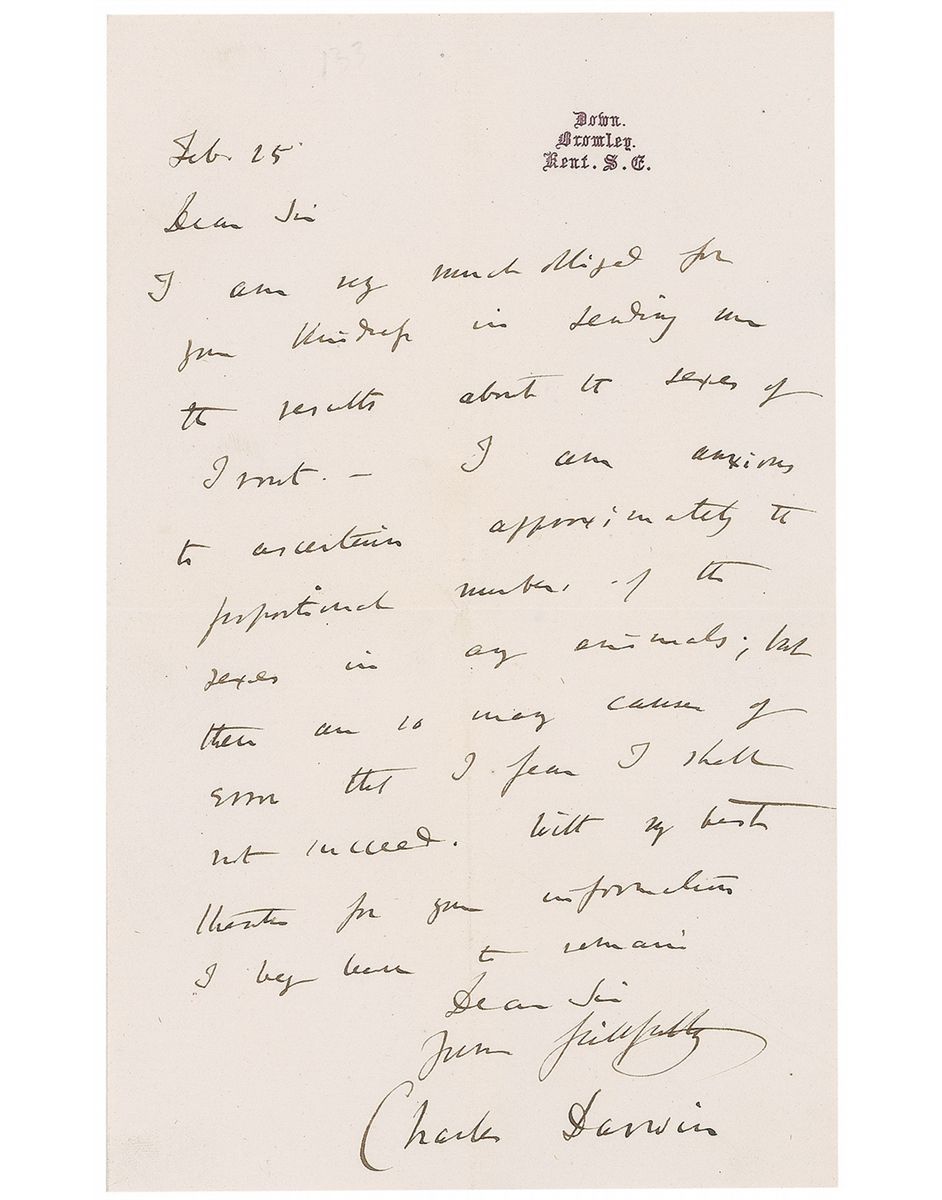 133
Down.
Bromley.
Kent. S.E.
Feb. 25
Dear Sir
I am very much obliged for
your kindness in sending me
the results about the sexes of
Trout. — I am anxious
to ascertain approximately the
proportional number of the
sexes in any animals; but
there are so many causes of
error that I fear I shall
not succeed. With my best
thanks for your information
I beg leave to remain
Dear Sir
Yours faithfully
Charles Darwin